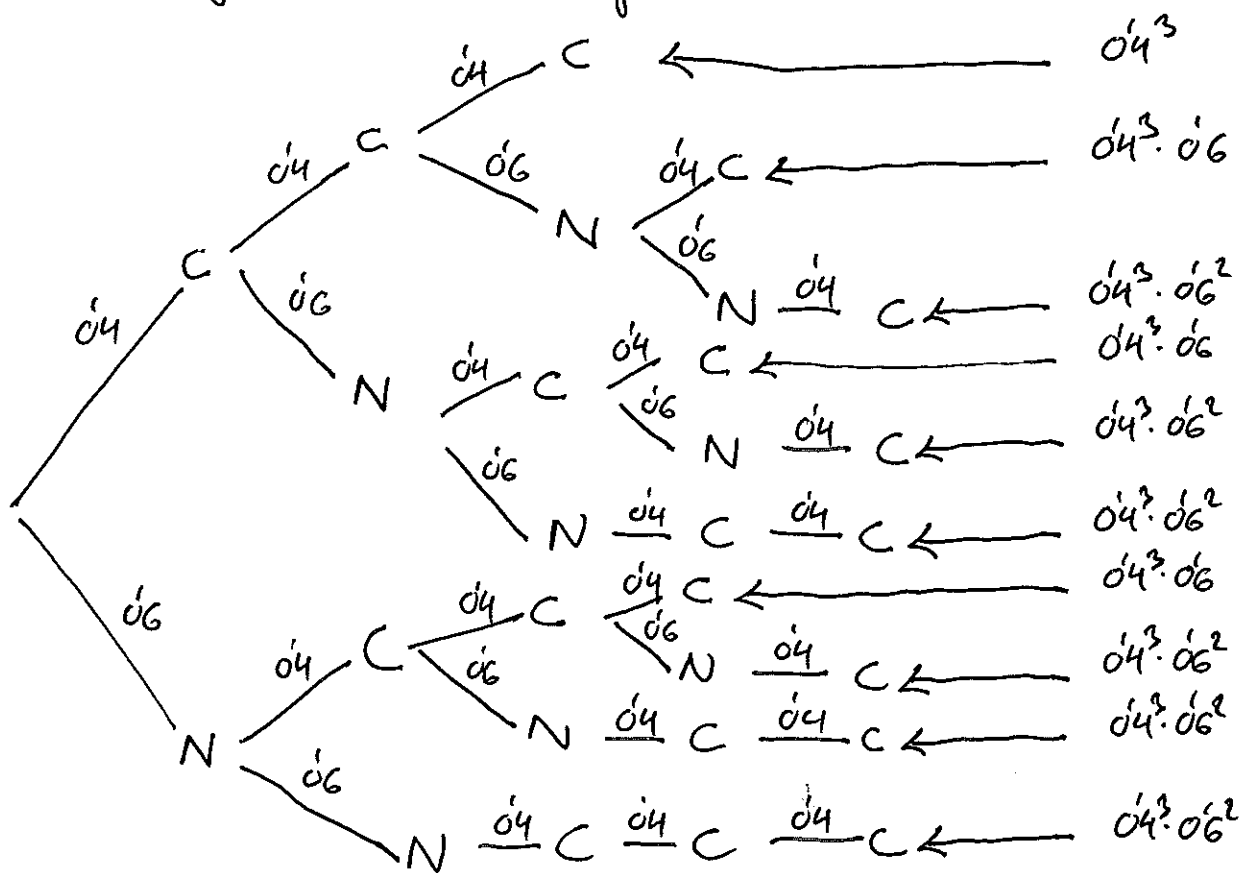 0'4 C 0'4³
C
0'4 0'6 0'4 C 0'4³·0'6
N
C 0'6
0'4 0'6 N 0'4 C 0'4³·0'6²
0'4 C 0'4 C 0'4³·0'6
N 0'6
0'6 N 0'4 C 0'4³·0'6²
N 0'4 C 0'4 C 0'4³·0'6²
0'6 0'4 C 0'4 C 0'4³·0'6
0'4 C 0'6
0'6 N 0'4 C 0'4³·0'6²
N N 0'4 C 0'4 C 0'4³·0'6²
0'6
N 0'4 C 0'4 C 0'4 C 0'4³·0'6²